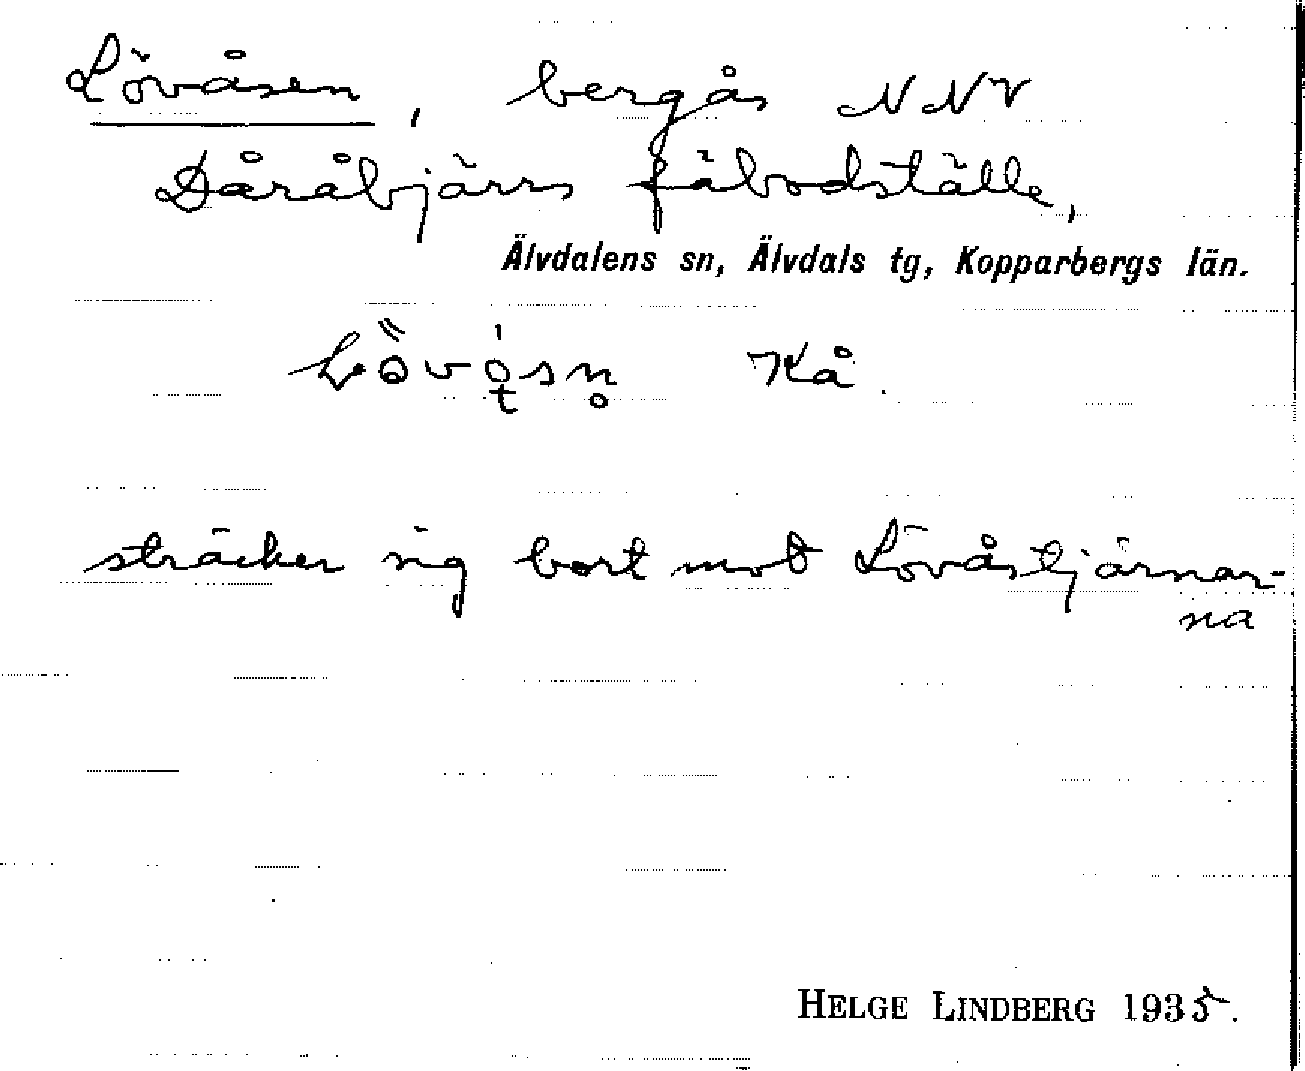 Lövåsen, bergås NNV
Dåråbjärs fäbodställe,
Älvdalens sn, Älvdals tg, Kopparbergs län.
Kå.
sträcker sig bort mot Lövåstjärnar-
na
HELGE LINDBERG 1935.